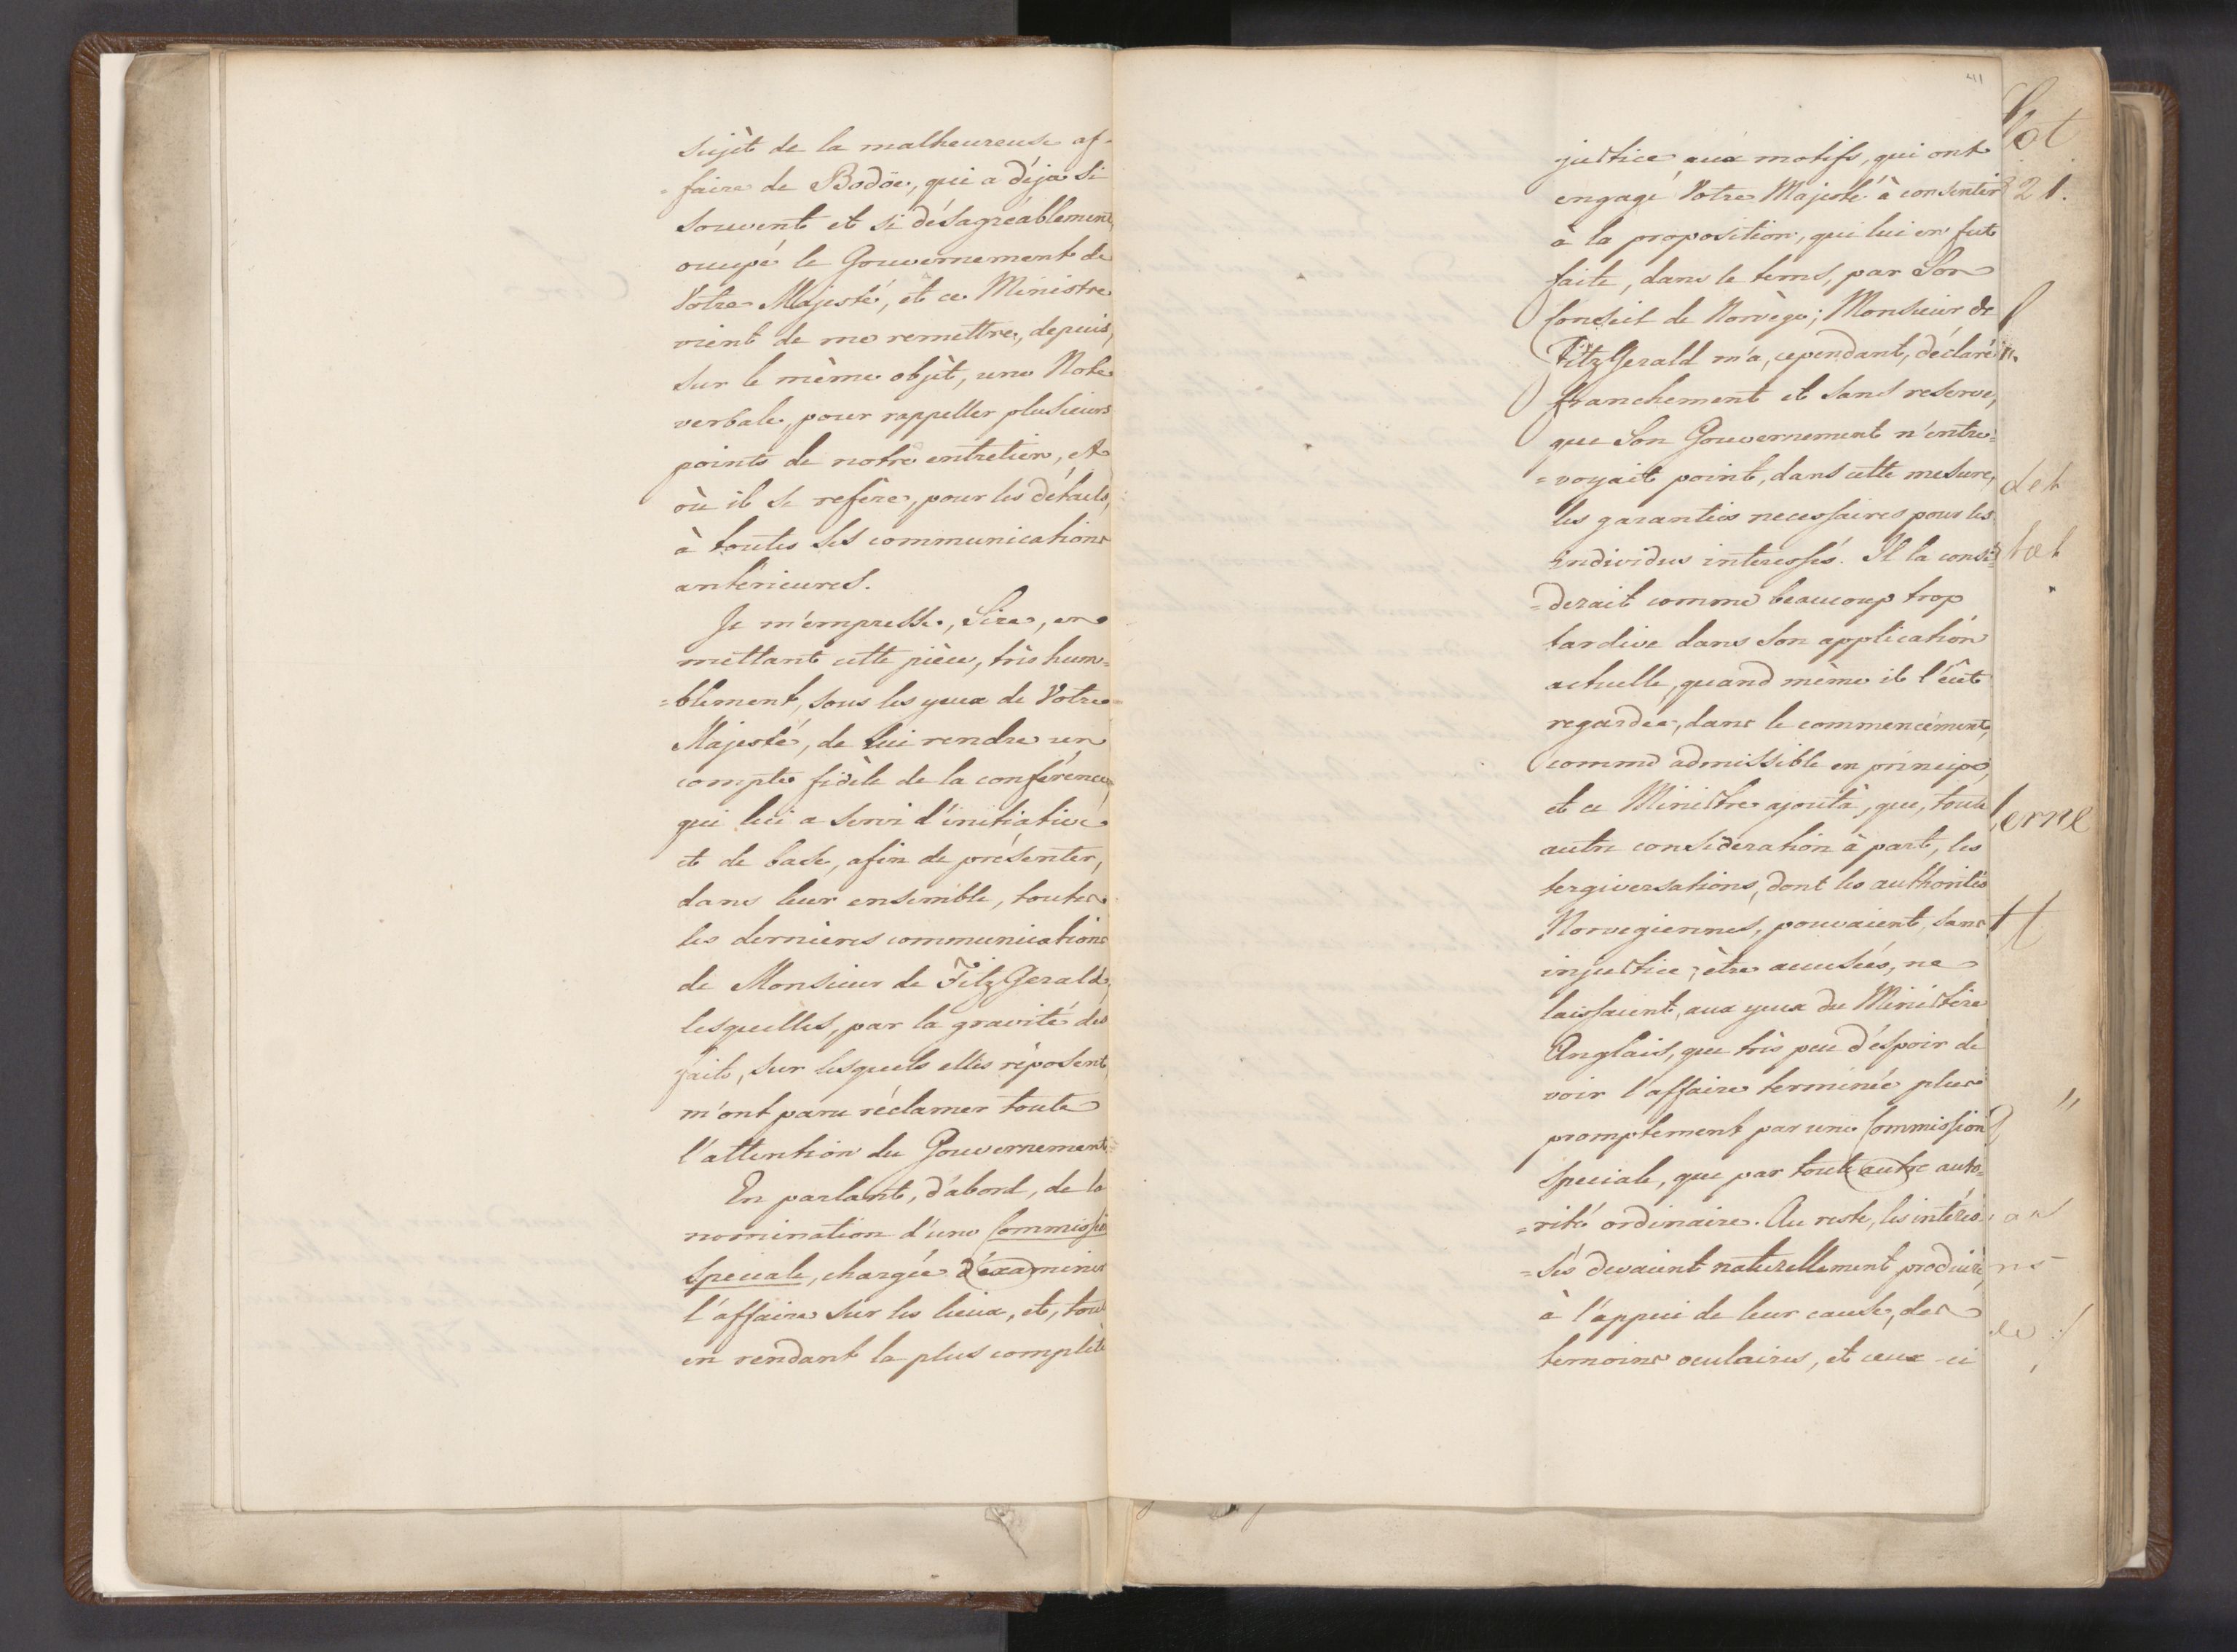 sujèt de la malheureuse af-
=faire de Bodöe, qui a déja si
souvent et si désagréablement
occupé le Gouvernement de
Votre Majesté, et ce Ministre
vient de me remettre, depuis,
sur le même objèt, une Note
verbale, pour rappeller plusieurs
points de notre entretien, et
où il se refère, pour les détails,
à toutes ses communications
antérieures.
Je m'empresse, Sire, en
mettant cette pièce, très hum=
=blement, sous les yeux de Votre
Majesté, de Lui rendre un
compte fidèle de la conférence,
qui lui a servi d'initiative
et de base, afin de présenter,
dans leur ensemble, toutes
les dernières communications
de Monsieur de FitzGerald,
lesquelles, par la gravité des
faits, sur lesquels elles réposent,
m'ont paru réclamer toute
l'attention du Gouvernement.
En parlant, d'abord, de la
nomination d'une Commission
Speciale, chargée d'éxaminer
l'affaire sur les lieux, et, tout
en rendant la plus complète
41
justice aux motifs, qui ont
engagé Votre Majesté à consentir
à la proposition, qui lui en fut
faite, dans le tems, par Son
Conseil de Norvège; Monsieur de
FitzGerald m'a, cependant, déclaré
franchement et sans reserve,
que Son Gouvernement n'entre=
=voyait point, dans cette mesure,
les garanties necessaires pour les
individus interessés. Il la consi=
=derait comme beaucoup trop
tardive dans son application
actuelle, quand même il l'eût
regardée, dans le commencement,
comme admissible en principe,
et ce Ministre ajouta, que, toute
autre consideration à part, les
tergiversations, dont les authorités
Norvegiennes, pouvaient, sans
injustice, être accusées, ne
laissaient, aux yeux du Ministère
Anglais, que très peu d'espoir de
voir l'affaire terminée plus
promptement par une Commission
Speciale, que par toute autre auto=
=rité ordinaire. Au reste, les intéres=
=sés devaient naturellement produire,
à l'appui de leur cause, des
temoins oculaires, et ceux-ci
21.
det
tet
erne